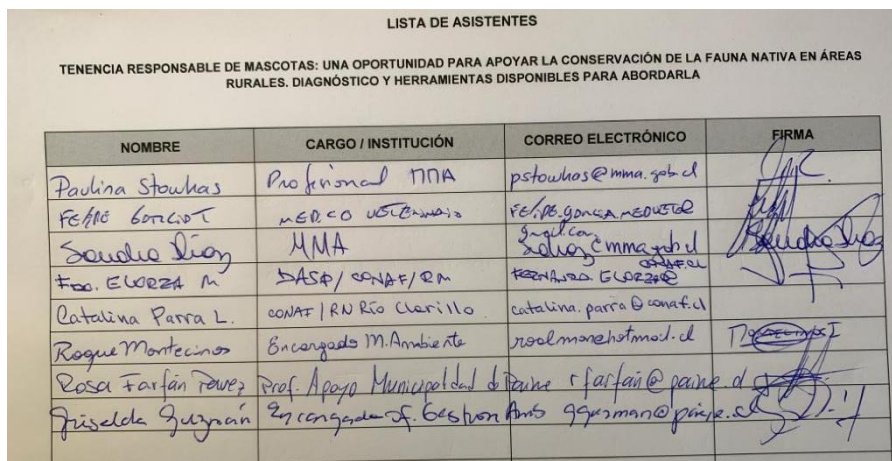 LISTA DE ASISTENTES
TENENCIA RESPONSABLE DE MASCOTAS: UNA OPORTUNIDAD PARA APOYAR LA CONSERVACIÓN DE LA FAUNA NATIVA EN ÁREAS
RURALES. DIAGNÓSTICO Y HERRAMIENTAS DISPONIBLES PARA ABORDARLA
NOMBRE CARGO / INSTITUCIÓN CORREO ELECTRÓNICO FIRMA
Paulina Stowhas Profesional MMA pstowhas@mma.gob.cl
FELIPE MEDICO VETERINARIO
gmail.com
Sandra Díaz MMA Sandra Díaz
conaf.cl
Fdo. ELORZA M DASP/CONAF/RM FERNANDO.ELORZA@
Catalina Parra L. CONAF/RN Río Clarillo catalina.parra@conaf.cl
Roque Montecinos Encargado M.Ambiente
Rosa Farfán Prof. Apoyo Municipalidad de Paine rfarfan@paine.cl
Griselda Guzmán Encargada Of. Gestion Amb gguzman@paine.cl